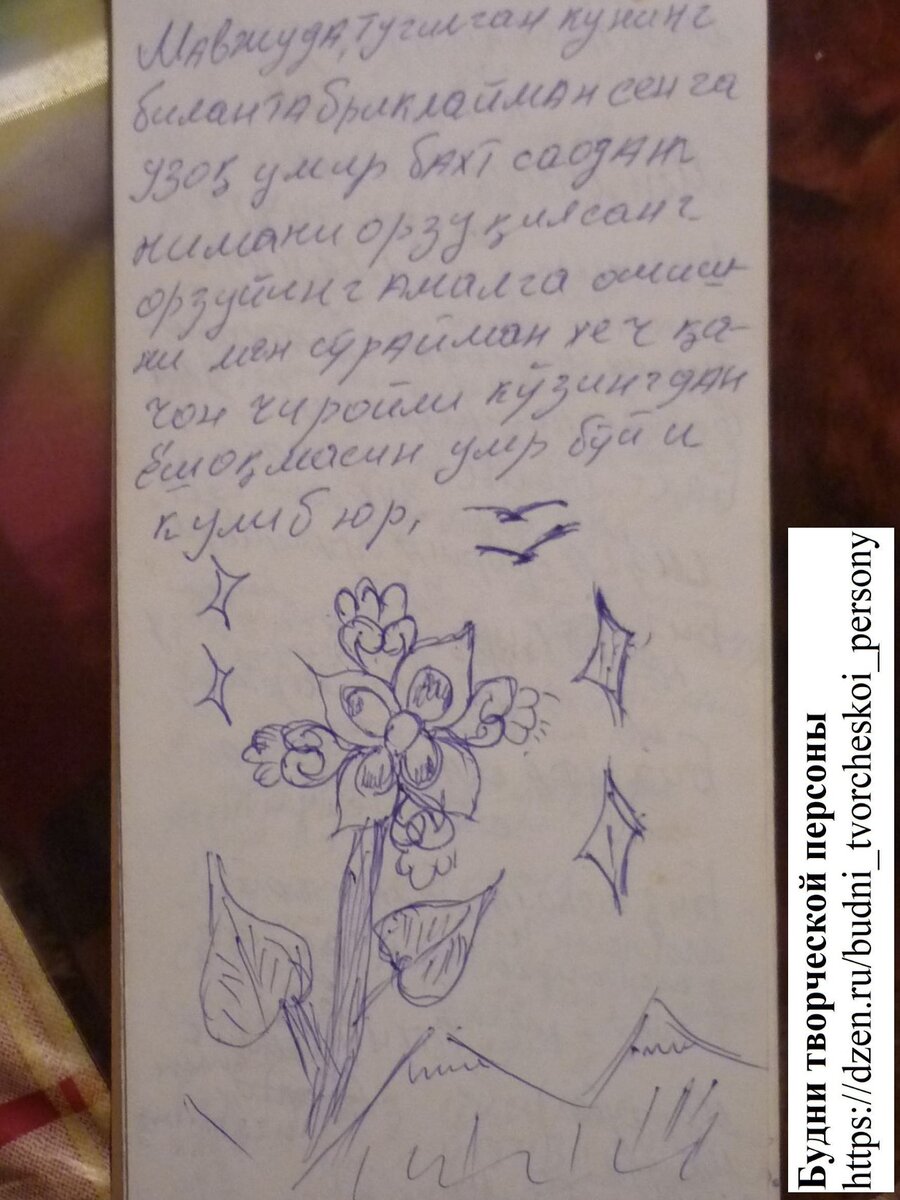 Мавжуда, тугилган кунинг
билан табриклайман сенга
узоқ умир бахт саодат
нимани орзу қилсанг
орзуйинг амалга ошиш-
ни мен сўрайман хеч қа-
чон чиройли кўзингдан
ёш оқмасин умр бўйи
кулиб юр,
Будни творческой персоны
https://dzen.ru/budni_tvorcheskoi_persony